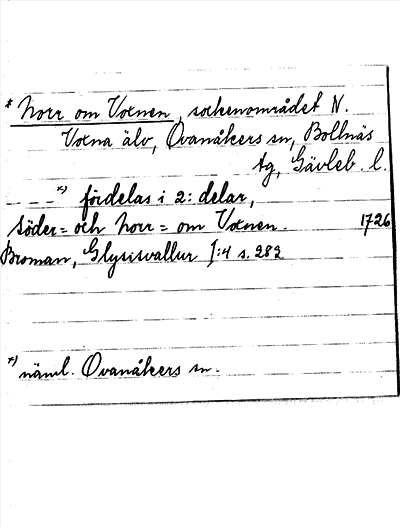 * Norr om Voxnen, sockenområdet N.
Voxna älv, Ovanåkers sn, Bollnäs
tg, Gävleb. l.
– – – *) fördelas i 2: delar,
söder= och Norr= om Voxnen. 1726
Broman, Glysisvallur I:4 s. 282
*) näml. Ovanåkers sn.